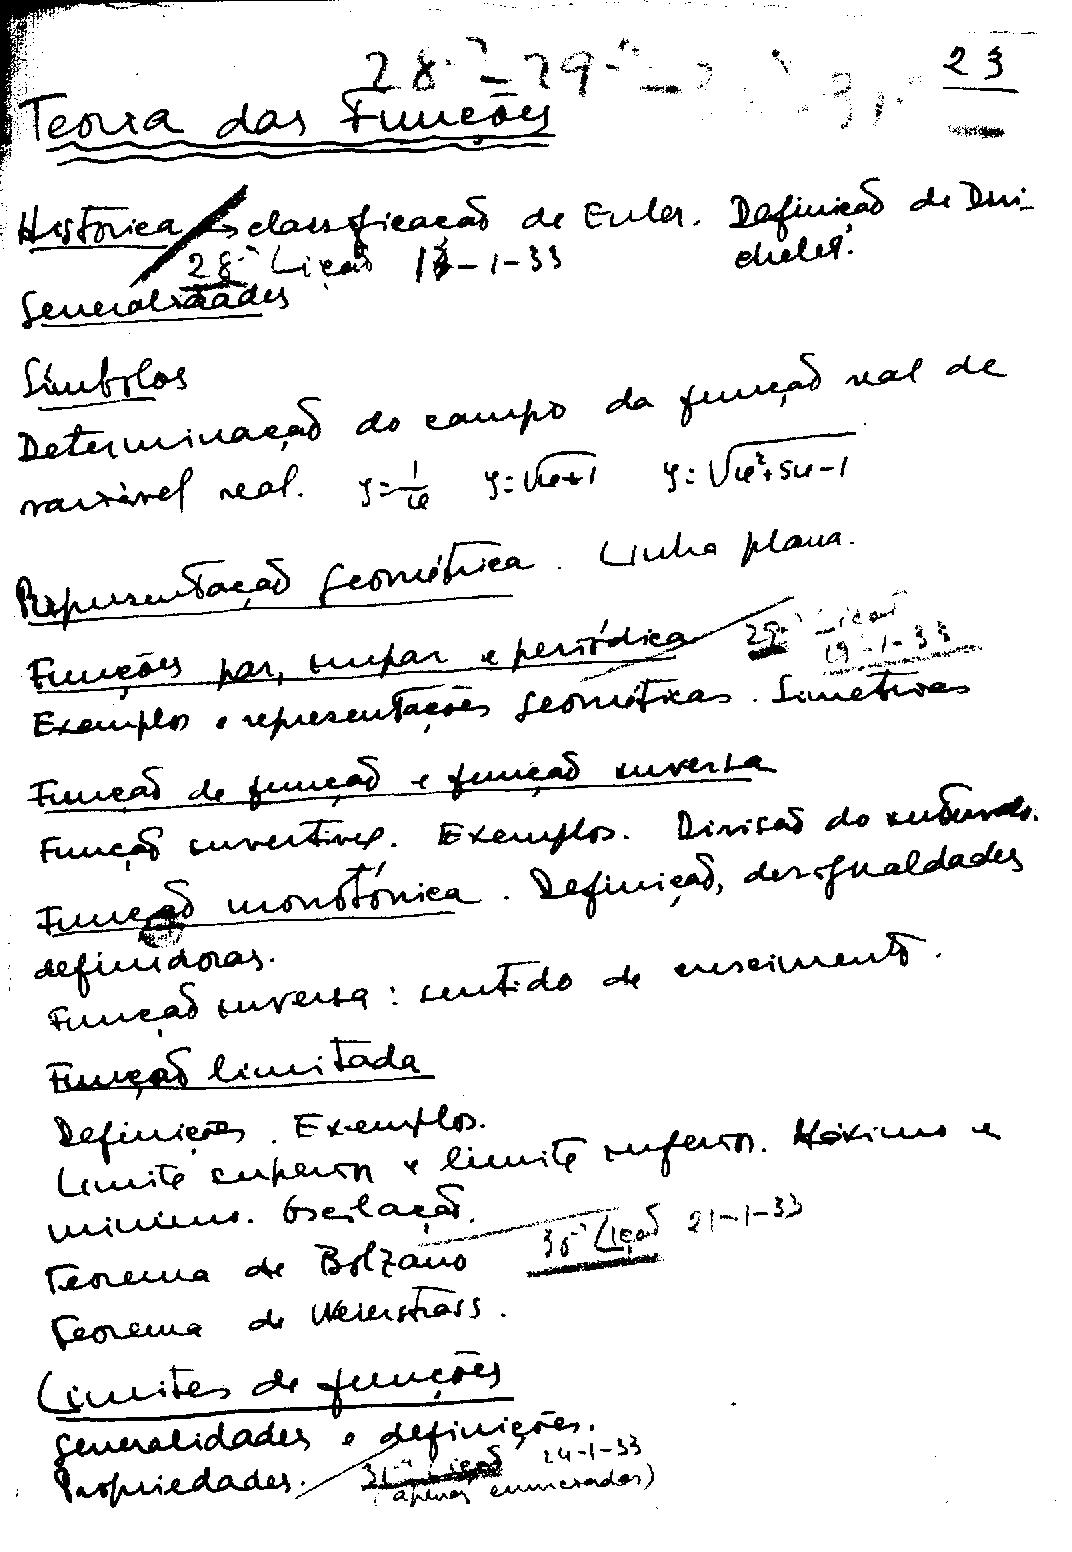 28.ª - 29.ª - 31
23
Teoria das Funções
Histórica classificação de Euler. Definição de Diri-
chelet.
28.ª Lição 18-1-33
Generalidades
Símbolos
Determinação do campo da função real de
variável real. y=1/x y=√x+1 y=√x²+5x-1
Representação geométrica. Linha plana.
Funções par, impar e periódica
29.ª Lição
19-1-33
Exemplos e representações geométricas. Simetrias
Função de função e função inversa
Função invertível. Exemplos. Divisão do intervalo.
Função monotónica. Definição, desigualdades
definidoras.
Função inversa: sentido de crescimento.
Função limitada
Definições. Exemplos.
Limite superior e limite inferior. Máximo e
mínimo. Oscilação.
30ª Lição 21-1-33
Teorema de Bolzano
Teorema de Weierstrass.
Limites de funções
Generalidades e definições.
Propriedades. 31ª Lição 24-1-33
(apenas enumeradas)